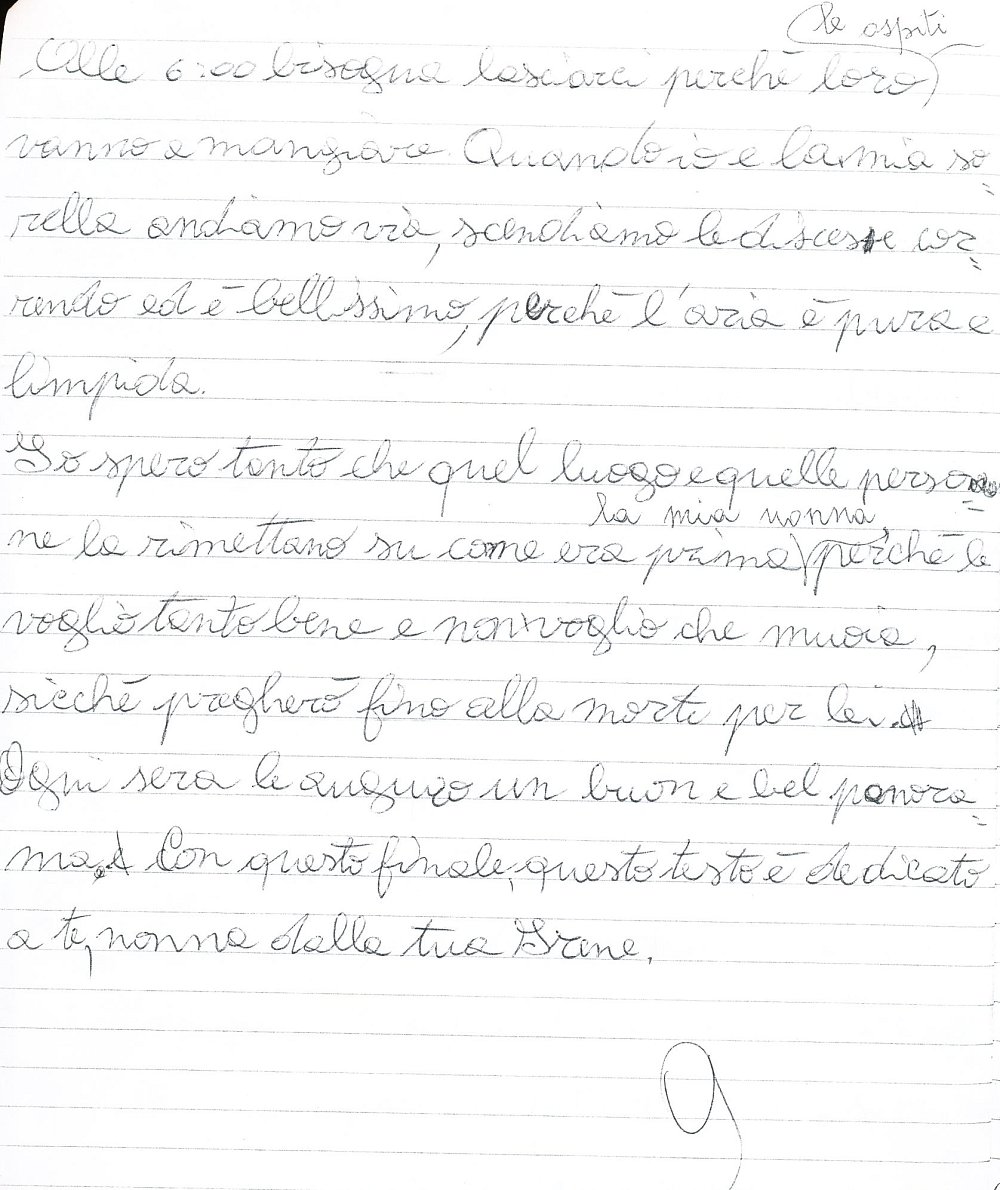 le ospiti
Alle 6:00 bisogna lasciarci perchè loro
vanno a mangiare. Quando io e la mia so=
rella andiamo via, scendiamo le discese cor=
rendo ed è bellissimo, perchè l'aria è pura e
limpida.
Io spero tanto che quel luogo e quelle perso=
la mia nonna,
ne la rimettano su come era prima perchè le
voglio tanto bene e non voglio che muoia,
sicchè pregherò fino alla morte per lei.
Ogni sera le auguro un buon e bel panora=
ma. Con questo finale, questo testo è dedicato
a te, nonna dalla tua Irene.
9